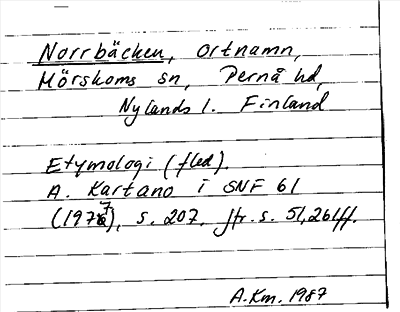 Norrbäcken, ortnamn,
Mörskoms sn, Pernå hd,
Nylands l. Finland
Etymologi (fled).
A. Kartano i SNF 61
(1977), s. 207. Jfr. s. 51, 261ff.
A.Km. 1987